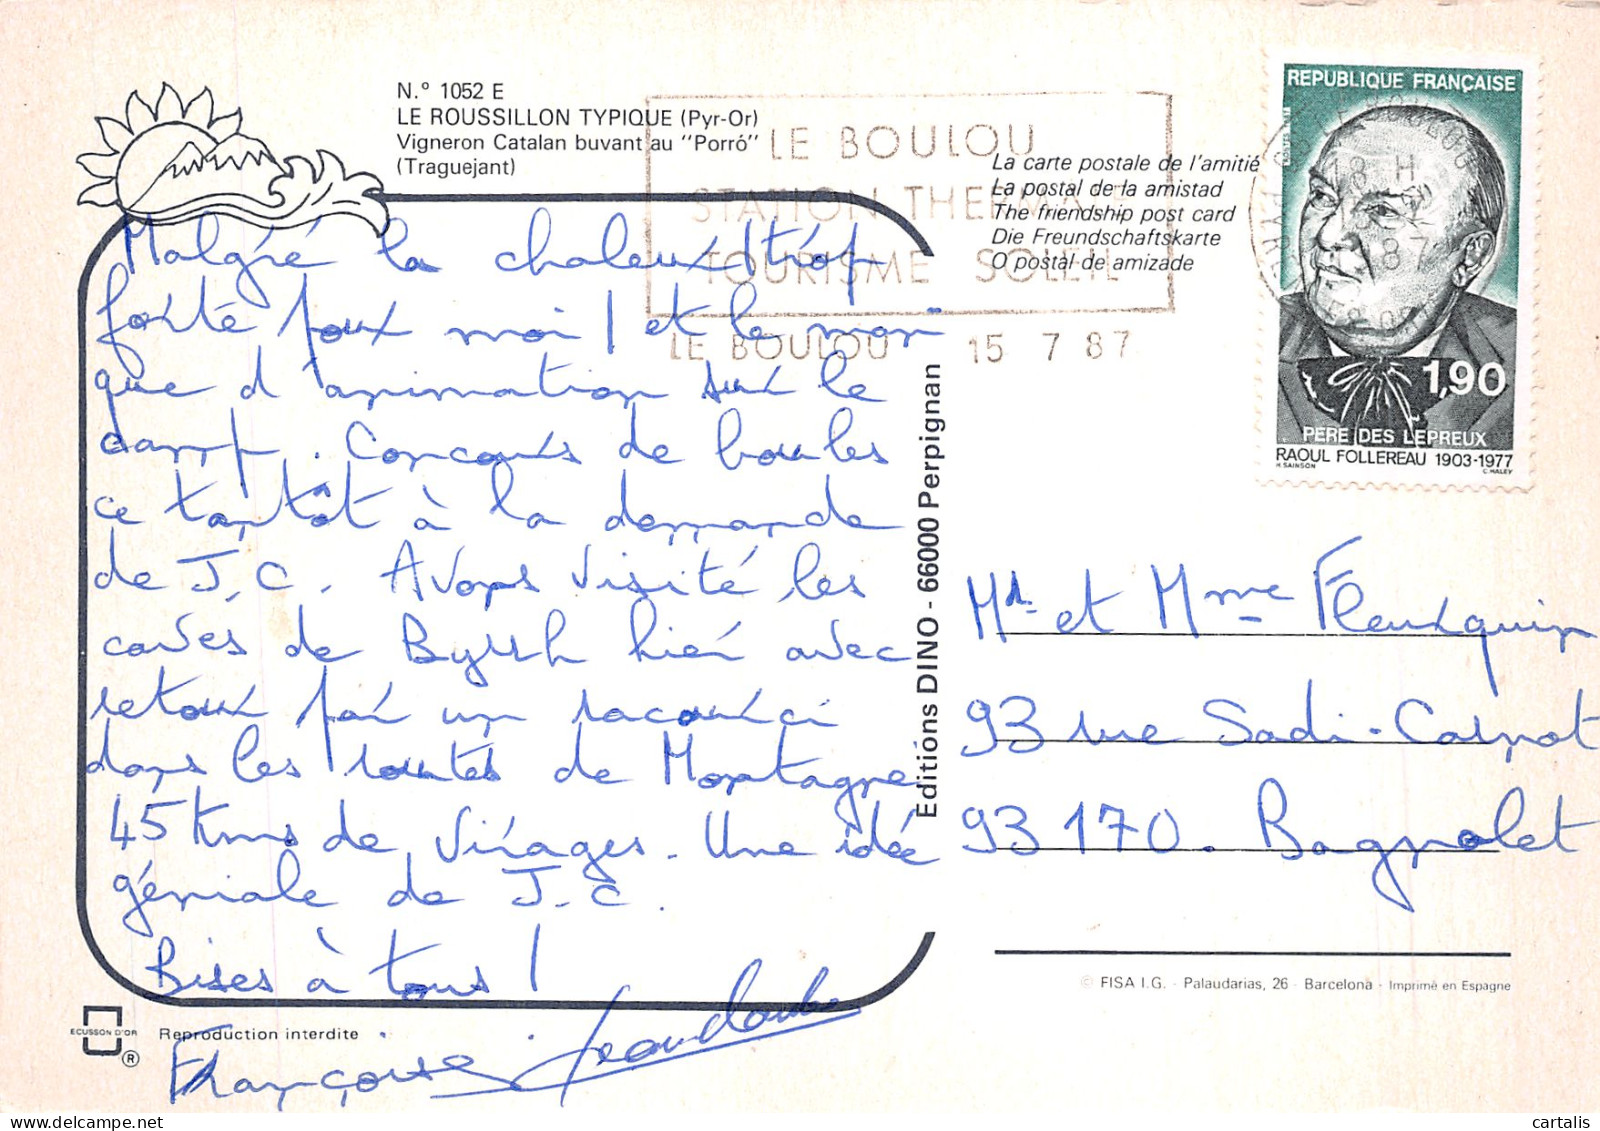 N.° 1052 E
LE ROUSSILLON TYPIQUE (Pyr-Or)
Vigneron Catalan buvant au "Porró"
(Traguejant)
LE BOULOU
STATION THERMALE
TOURISME SOLEIL
LE BOULOU 15 7 87
La carte postale de l'amitié
La postal de la amistad
The friendship post card
Die Freundschaftskarte
O postal de amizade
REPUBLIQUE FRANÇAISE
18 H
87
1,90
PERE DES LEPREUX
RAOUL FOLLEREAU 1903-1977
H. SAINSON C. HALEY
Malgré la chaleur (trop
forte pour moi) et le man
que d'animation sur le
camp. Concours de boules
ce tantôt à la demande
de J.C. Avons visité les
caves de Byrrh hier avec
retour par un raccourci
dans les routes de Montagne
45 Kms de virages. Une idée
géniale de J.C.
Bises à tous !
Françoise
Editions DINO - 66000 Perpignan
Md et Mme Fleurquin
93 rue Sadi-Carnot
93170. Bagnolet
© FISA I.G. - Palaudarias, 26 - Barcelona - Imprimé en Espagne
ECUSSON D'OR
®
Reproduction interdite
cartalis